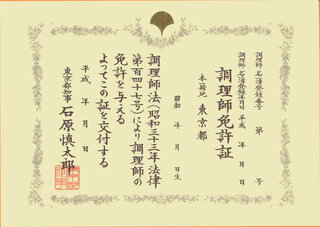 調理師名簿登録番号 第 号
調理師名簿登録年月日 平成 年 月 日
調理師免許証
本籍地 東京都
昭和 年 月 日生
調理師法(昭和三十三年法律
第百四十七号)により調理師の
免許を与える
よってこの証を交付する
平成 年 月 日
東京都知事 石原慎太郎